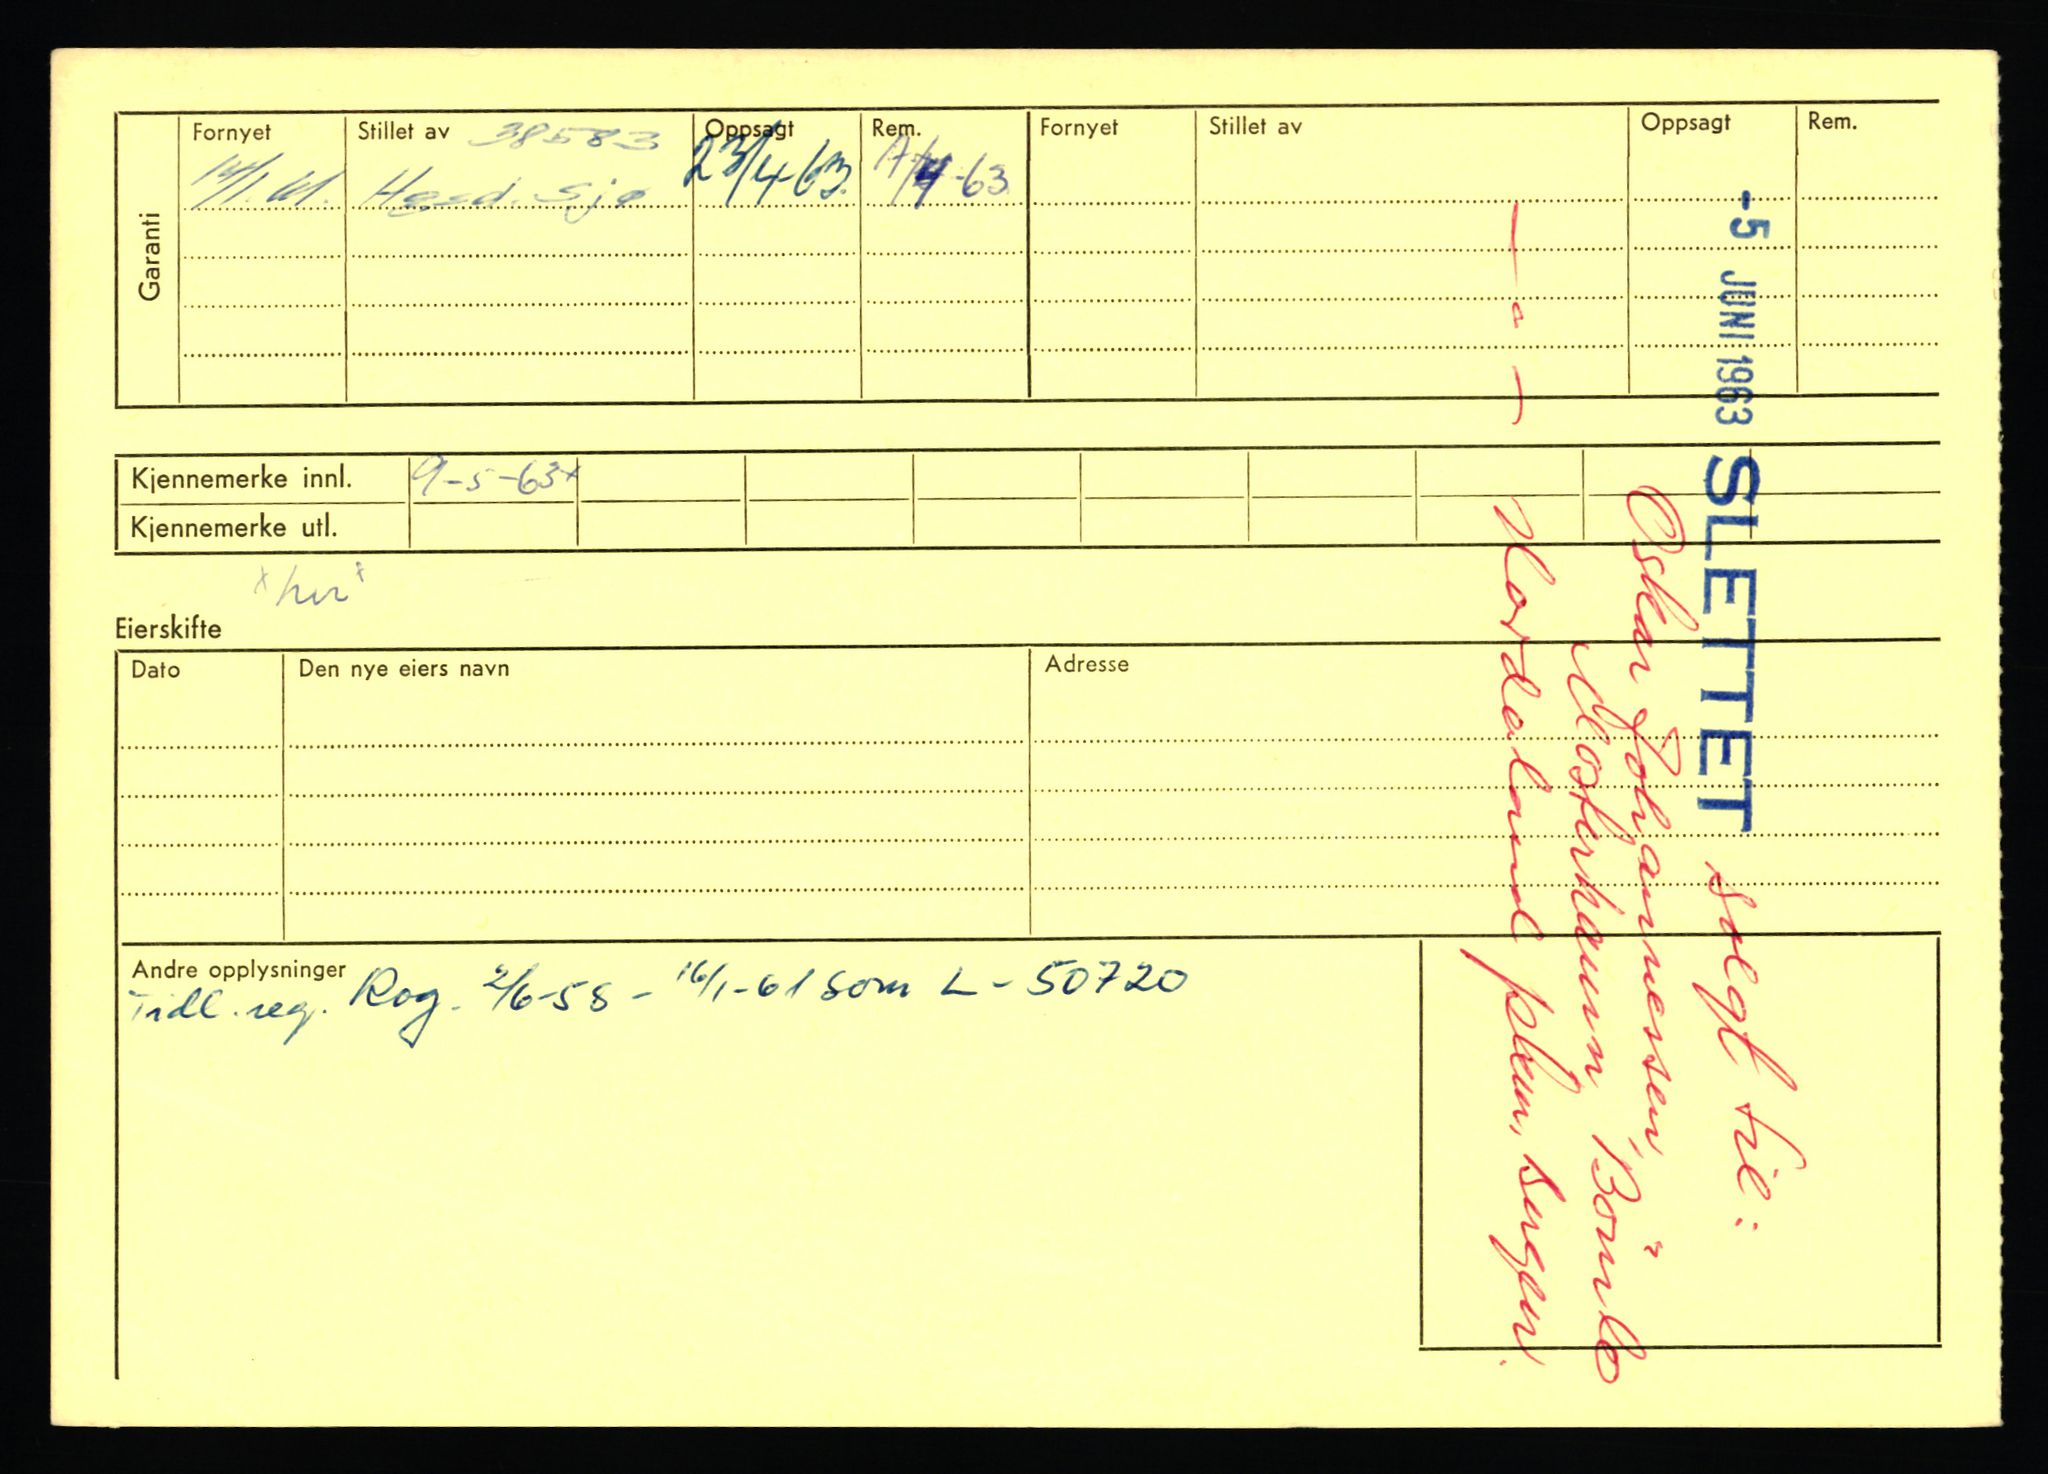 Garanti
Fornyet Stillet av 38583 Oppsagt Rem. Fornyet Stillet av Oppsagt Rem.
14/1.61. Hard. Sjø 23/4-63. /4-63
Kjennemerke innl. 9-5-63x
Kjennemerke utl.
Eierskifte
Dato Den nye eiers navn Adresse
Andre opplysninger
Tidl. reg. Rog. 2/6-58 - 16/1-61 som L - 50720
-5 JUNI 1963 SLETTET solgt til:
Oskar Johannessen,
Mosterhamn, Bömlo
— o — Hordaland pkm, Bergen.